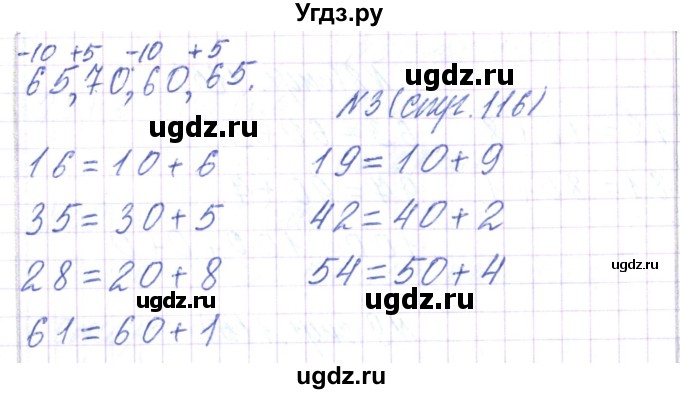 Угдз.ру
-10 +5 -10 +5
65, 70, 60, 65.
ugdz.ru
ugdz.ru
N3 (стр. 116)
16=10+6
19=10+9
ugdz.ru
35=30+5
42=40+2
28=20+8
54=50+4
ugdz.ru
ugdz.ru
ugdz.ru
61=60+1
ugdz.ru
ugdz.ru